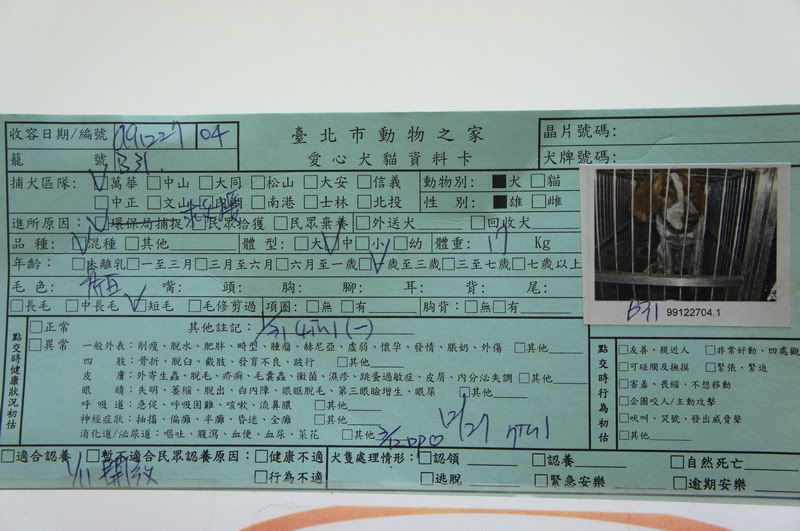 收容日期/編號 991227 04
籠 號 B31
臺北市動物之家
愛心犬貓資料卡
晶片號碼:
犬牌號碼:
捕犬區隊: ☑萬華 □中山 □大同 □松山 □大安 □信義
□中正 □文山 □內湖 □南港 □士林 □北投
動物別: ■犬 □貓
性 別: ■雄 □雌
進所原因: ☑環保局捕捉 □民眾拾獲 □民眾棄養 □外送犬 □回收犬
品種: ☑混種 □其他 體型: □大 ☑中 □小 □幼 體重: 17 Kg
年齡: □未離乳 □一至三月 □三月至六月 □六月至一歲 ☑一歲至三歲 □三至七歲 □七歲以上
毛色: 嘴: 頭: 胸: 腳: 耳: 背: 尾:
□長毛 □中長毛 ☑短毛 □毛修剪過 項圈: □無 □有 胸背: □無 □有
B31 99122704.1
點交時健康狀況初估
□正常 其他註記:
□異常 一般外表: 削瘦、脫水、肥胖、畸型、腫瘤、赫尼亞、虛弱、懷孕、發情、脹奶、外傷 □其他
四 肢: 骨折、脫臼、截肢、發育不良、跛行 □其他
皮 膚: 外寄生蟲、脫毛、疥癬、毛囊蟲、黴菌、濕疹、跳蚤過敏症、皮屑、內分泌失調 □其他
眼 睛: 失明、萎縮、脫出、白內障、眼眶脫毛、第三眼瞼增生、眼屎 □其他
呼吸道: 急促、呼吸困難、咳嗽、流鼻膿 □其他
神經症狀: 抽搐、偏癱、半癱、昏迷、全癱 □其他
消化道/泌尿道: 嘔吐、腹瀉、血便、血尿、菜花 □其他
12/27
點交時行為初估
□友善、親近人 □非常好動、四處觀
□可碰觸及撫摸 □緊張、緊迫
□害羞、畏縮、不想移動
□企圖咬人/主動攻擊
□吠叫、哭號、發出威脅聲
□其他
□適合認養 □暫不適合民眾認養原因: □健康不適
□行為不適
1/11 開放
犬隻處理情形: □認領 □認養 □自然死亡
□逃脫 □緊急安樂 □逾期安樂